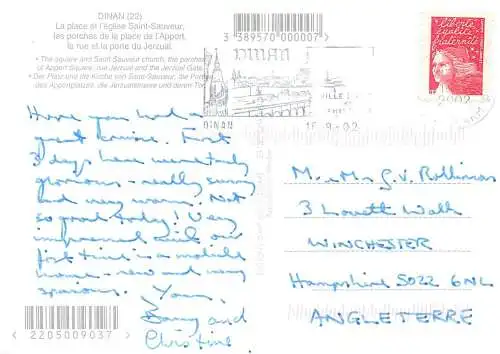 DINAN (22)
La place et l'église Saint-Sauveur,
les porches de la place de l'Apport,
la rue et la porte du Jerzual.
• The square and Saint Sauveur church, the porches
of Apport Square, rue Jerzual and the Jerzual Gate.
• Der Platz und die Kirche von Saint-Sauveur, die
des Apportplatzes, die Jerzualstrasse und deren
3 389570 000007
DINAN
VILLE
DINAN
16-9-02
liberté
égalité
fraternité
Hope you had a
great cruise. First
3 days here were truly
glorious - really sunny
and very warm. Not
so good today! Very
impressed with our
first time in a mobile
home - new and very
spacious.
Yours,
Barry and
Christine
Mr. & Mrs G.V. Rollinson
3 Lovett Walk
WINCHESTER
Hampshire SO22 6NL
ANGLETERRE
2205009037